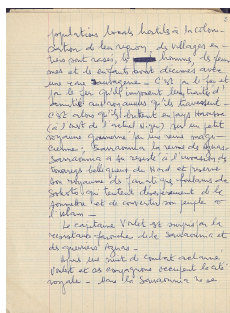 2
populations locales hostiles à la colon-
sation de leur region, des villages en-
tiers sont rasés, les hommes, les fem
mes et les enfants sont décimés avec
une rare sauvagerie - C'est par le feu et
par le fer qu'ils imposent les traités d'
amitié aux royaumes qu'ils traversent -
C'est alors qu'ils butent en pays Haoussa
(à l'est de l'actuel Niger) sur un petit
royaume gouverné par une reine magi-
cienne, Sarraounia la reine des Aznas.
Sarraounia a su resister à l'invasion des
touaregs belliqueux du Nord et préserver
son royaume de fanatiques foulanis de
Sokoto qui tentent désespérément de la
soumettre et de convertir son peuple à
l'Islam -
Le capitaine Voulet est surpris par la
resistance farouche de la Sarraounia et
des guerriers Aznas -
Après une nuit de combat acharné
Voulet et ses compagnons occupent la cité
royale - Mais la Sarraounia ne se